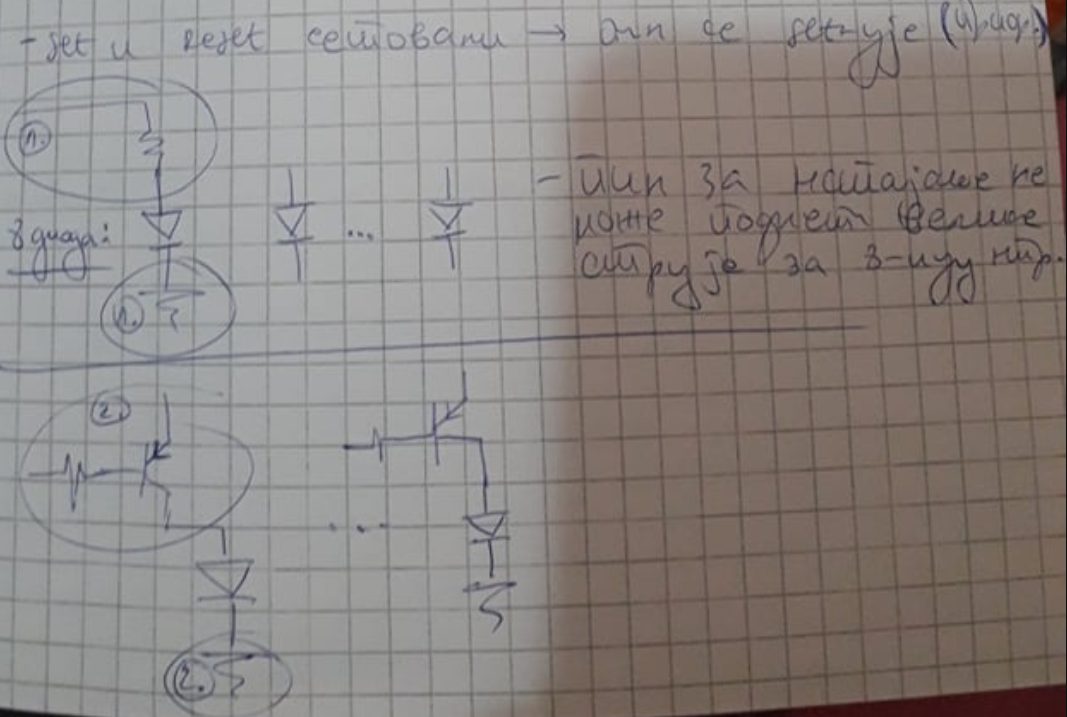 - set и reset сетовани → ако се set-ује
1.
8 диода:
1.
- пин за напајање не
може поднети велике
струје за 8-цу нпр.
2.
...
...
2.